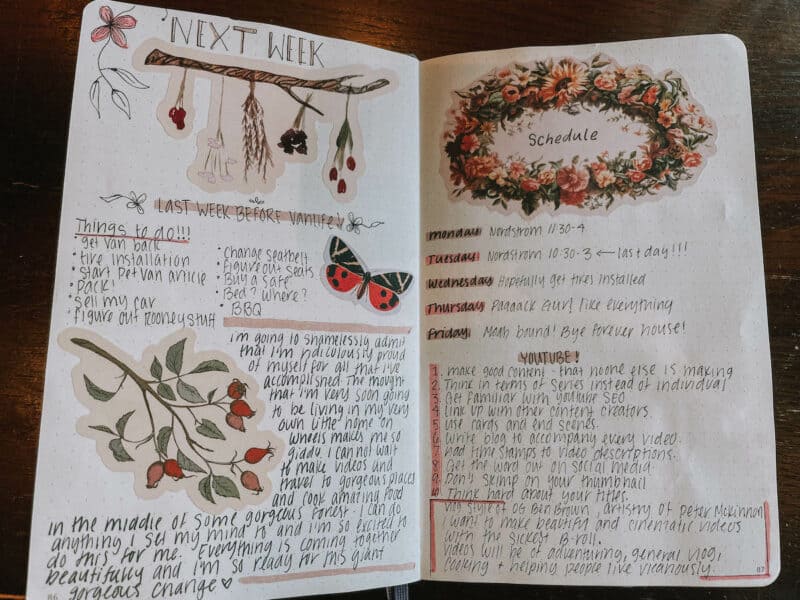 NEXT WEEK
LAST WEEK BEFORE VANLIFE
Things to do!!!
• get van back
• tire installation
• start pet van article
• pack!
• sell my car
• figure out Rooney stuff
• change seatbelt
• Figure out seats
• Buy a safe
• Bed? Where?
• BBQ
i'm going to shamelessly admit
that I'm ridiculously proud
of myself for all that I've
accomplished. The thought
that I'm very soon going
to be living in my very
own little home on
wheels makes me so
giddy. I can not wait
to make videos and
travel to gorgeous places
and cook amazing food
in the middle of some gorgeous forest. I can do
anything I set my mind to and i'm so excited to
do this for me. Everything is coming together
beautifully and i'm so ready for this giant
gorgeous change ♡
86
Schedule
Monday Nordstrom 11:30-4
Tuesday Nordstrom 10:30-3 ← last day!!!
Wednesday Hopefully get tires installed
Thursday Gurl like everything
Friday. Moab bound! Bye forever house!
YOUTUBE!
1. make good content - that no one else is making
2. Think in terms of Series instead of individual
3. Get Familiar with youtube SEO
4. Link up with other content creators.
5. use cards and end scenes.
6. write blog to accompany every video.
7. Add time stamps to video descriptions.
8. Get the word out on social media.
9. Don't skimp on your thumbnail
10. Think hard about your titles.
style of OG Ben Brown, artistry of Peter McKinnon
I want to make beautiful and cinematic videos
with the sickest B-roll.
Videos will be of adventuring, general vlog,
cooking + helping people live vicariously.
87